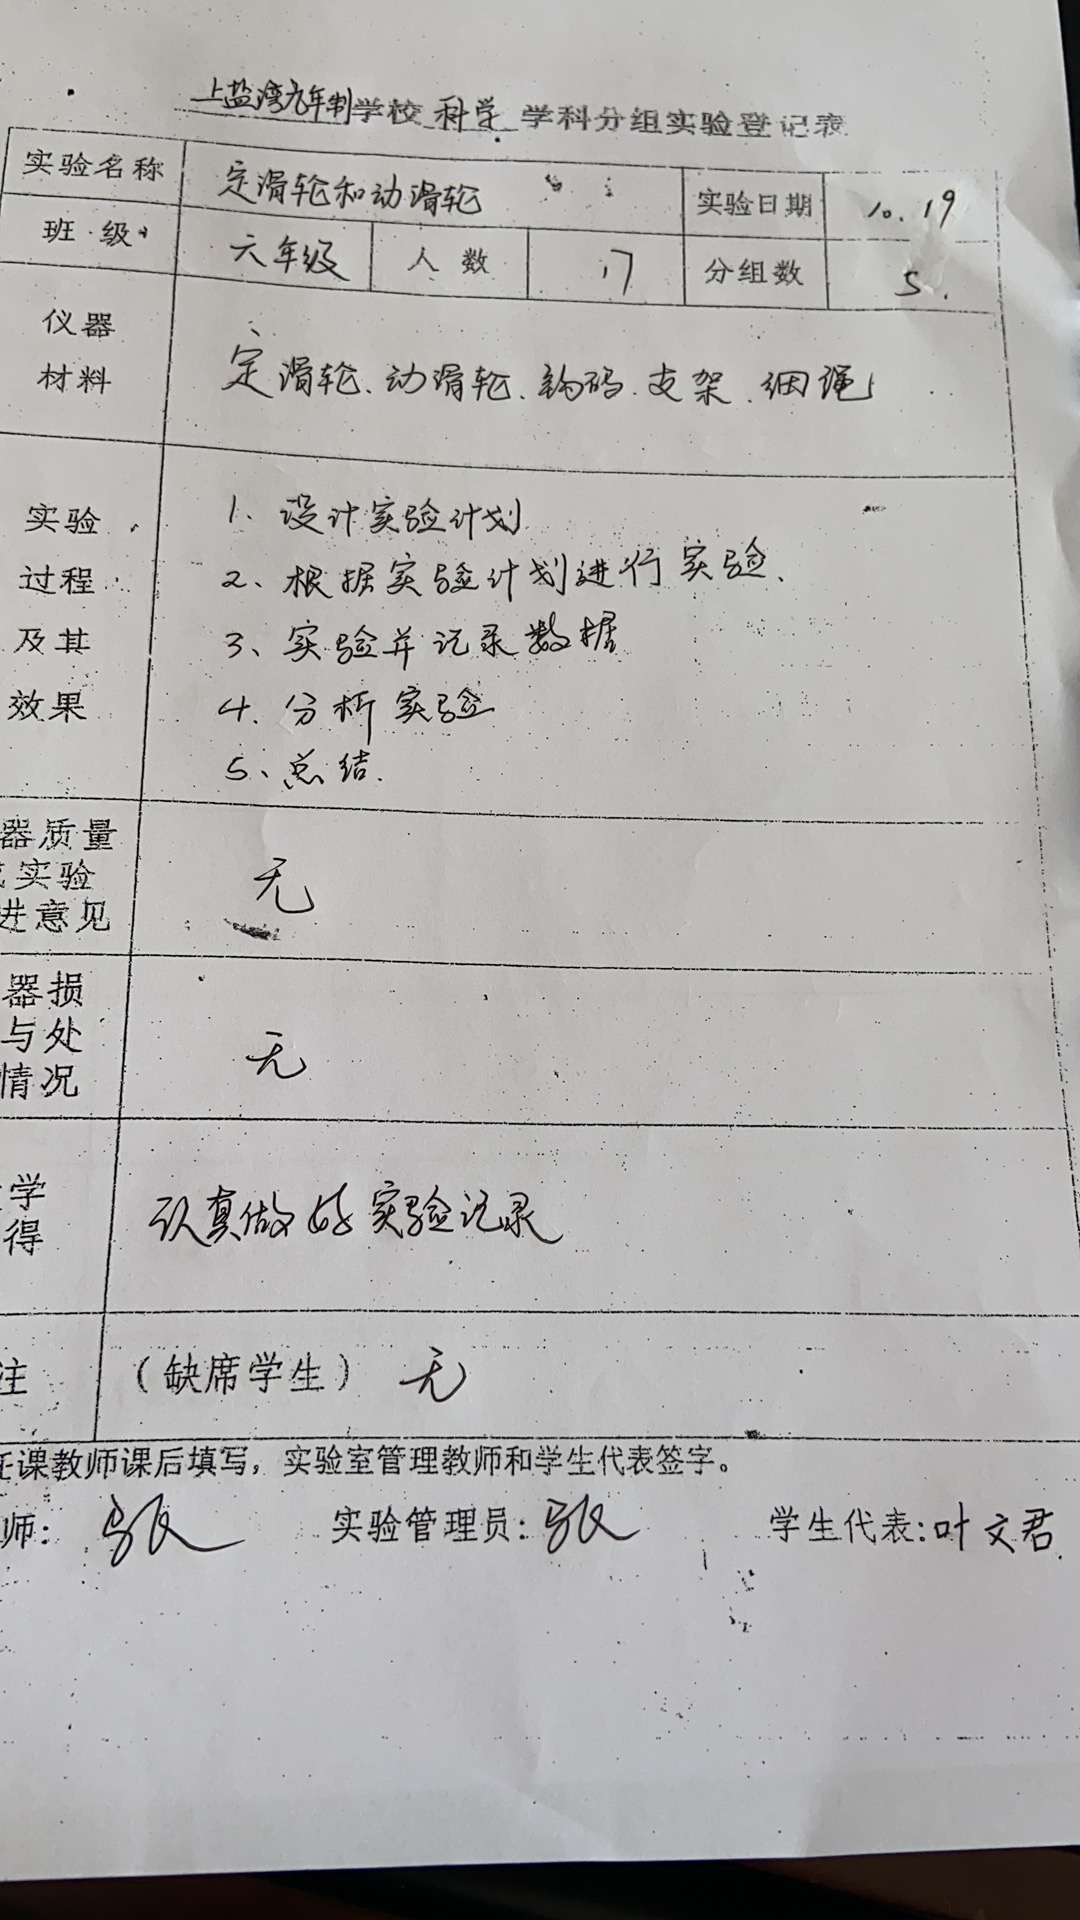 上盐湾九年制学校 科学 学科分组实验登记表
实验名称 定滑轮和动滑轮 实验日期 10.19
班级 六年级 人数 17 分组数 5.
仪器
材料
定滑轮、动滑轮、钩码、支架、细绳
实验
过程
及其
效果
1、设计实验计划
2、根据实验计划进行实验、
3、实验并记录数据
4、分析实验
5、总结.
器质量
实验
进意见
无
器损
与处
情况
无
学
得
认真做好实验记录
注 (缺席学生) 无
任课教师课后填写，实验室管理教师和学生代表签字。
师： 实验管理员： 学生代表：叶文君